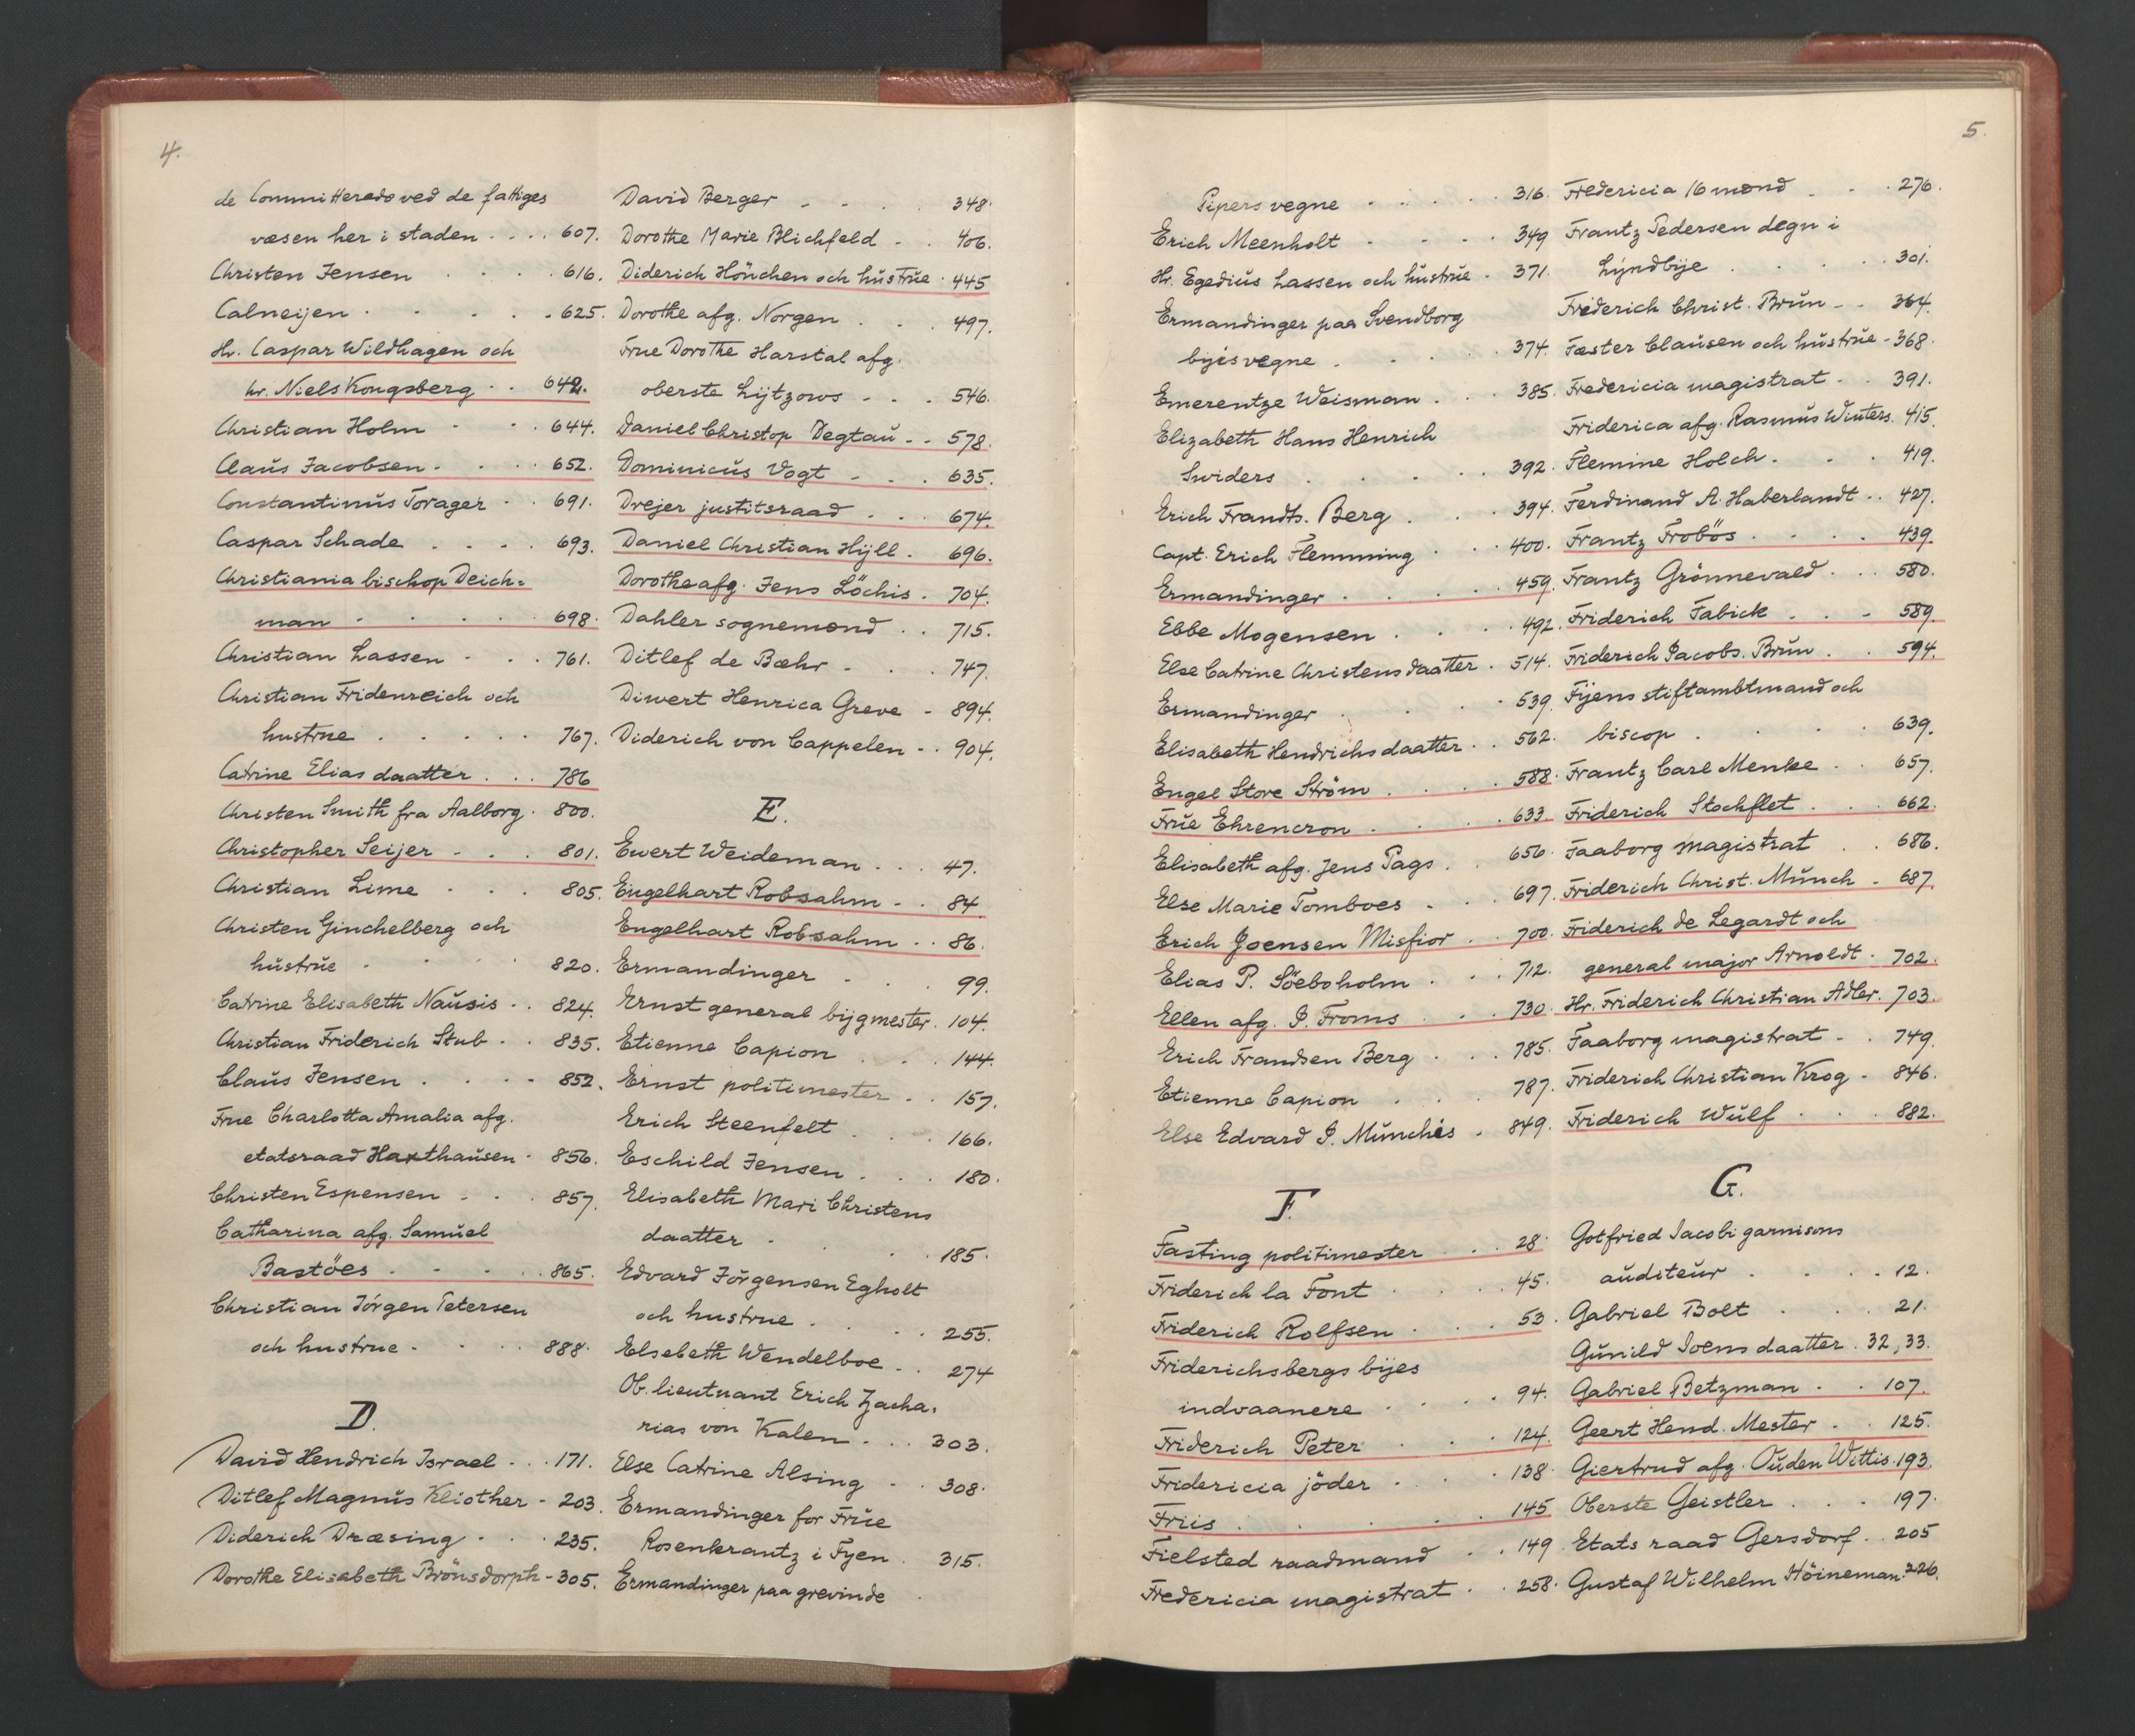 4.
de Committerede ved de fattiges
væsen her i staden . . . . 607.
Christen Jensen . . . . 616.
Calneijen . . . . . . 625.
Hr. Caspar Wildhagen och
hr. Niels Kongsberg . . 642.
Christian Holm . . . . 644.
Claus Jacobsen . . . . 652.
Constantinus Torager . . 691.
Caspar Schade . . . . 693.
Christiania bischop Deich=
man . . . . . 698.
Christian Lassen . . . 761.
Christian Fridenreich och
hustrue . . . . . 767.
Catrine Elias daatter . . . 786
Christen Smith fra Aalborg . 800.
Christopher Seijer . . . 801.
Christian Lime . . . 805.
Christen Ginchelberg och
hustrue . . . . 820.
Catrine Elisabeth Nausis . . 824.
Christian Friderich Stub . . 835.
Claus Jensen . . . . 852.
Frue Charlotta Amalia afg.
etatsraad Haxthausen . 856.
Christen Espensen . . . 857.
Catharina afg. Samuel
Bastöes . . . . . 865.
Christian Jörgen Petersen
och hustrue . . . . 888.
D.
David Hendrich Israel . . . 171.
Ditlef Magnus Kliother - 203.
Diderich Dræsing . . . 235.
Dorothe Elisabeth Brönsdorph - 305.
David Berger . . . . 348.
Dorothe Marie Blichfeld . . 406.
Diderich Hönchen och hustrue . 445
Dorothe afg. Norgen . . . 497.
Frue Dorothe Harstal afg.
oberste Lijtzows . . . 546.
Daniel Christop Degtau . . 578.
Dominicus Vogt . . . 635.
Drejer justitsraad . . . 674.
Daniel Christian Hijll . 696.
Dorothe afg. Jens Löchis . 704.
Dahler sognemænd . . 715.
Ditlef de Bæhr . . . 747.
Diwert Henrica Greve - 894.
Diderich von Cappelen . . 904.
E.
Ewert Weideman . . . 47.
Engelhart Robsahm . . 84
Engelhart Robsahm . . 86.
Ermandinger . . . 99.
Ernst general bijgmester . 104.
Etienne Capion . . . 144.
Ernst politimester . . 157.
Erich Steenfelt . . . 166.
Eschild Jensen . . . 180.
Elisabeth Mari Christens
daatter . . . . 185.
Edvard Jörgensen Egholt
och hustrue . . . . 255.
Elsebeth Wendelboe . . 274
Ob. lieutnant Erich Zacha=
rias von Kalen . . . 303.
Else Catrine Alsing . . 308.
Ermandinger for Frue
Rosenkrantz i Fyen . 315.
Ermandinger paa grevinde
5.
Pipers vegne . . . . . 316.
Erich Meenholt . . . . 349
Hr. Egedius Lassen och hustrue . 371.
Ermandinger paa Svendborg
bijes vegne . . . . 374.
Emerentze Weisman . . . 385.
Elizabeth Hans Henrich
Swiders . . . . . 392.
Erich Frandts. Berg . . . 394.
Capt. Erich Flemming . . . 400.
Ermandinger . . . . . 459.
Ebbe Mogensen . . . . 492.
Else Catrine Christens daatter . 514.
Ermandinger . . . . 539.
Elisabeth Hendrichs daatter . . 562.
Engel Store Ström . . . . 588.
Frue Ehrencron . . . . 633.
Elisabeth afg. Jens Pags . . 656.
Else Marie Tomboes . . . 697.
Erich Joensen Misfior . . 700.
Elias P. Söeboholm . . . 712.
Ellen afg. P. Froms . . . 730.
Erich Frandsen Berg . . . 785.
Etienne Capion . . . 787.
Else Edvard P. Münchés . 849.
F.
Fasting politimester . . . 28.
Friderich la Font . . . . 45.
Friderich Rolfsen . . . 53.
Friderichsbergs bijes
indvaanere . . . . 94.
Friderich Peter . . . 124.
Fridericia jöder . . . . 138.
Friis . . . . . 145
Fielsted raadmand . . 149.
Fredericia magistrat . . 258.
Fredericia 16 mænd . . . 276.
Frantz Pedersen degn i
Lÿndbije . . . . . 301.
Friderich Christ. Brün . . 364.
Fæster Clausen och hustrue - 368.
Fredericia magistrat . . 391.
Friderica afg. Rasmus Winters. 415.
Flemine Holch . . . 419.
Ferdinand A. Haberlandt . . 427.
Frantz Frobös . . . . 439.
Frantz Grönnevald . . . 580.
Friderich Fabick . . . 589.
Friderich Jacobs. Brün . . 594.
Fijens stiftambtmand och
biscop . . . . 639.
Frantz Carl Menke . . 657.
Friderich Stochflet . . . 662.
Faaborg magistrat . . 686.
Friderich Christ. Münch . 687.
Friderich de Legardt och
general major Arnoldt . 702.
Hr. Friderich Christian Adler. 703.
Faaborg magistrat . . 749.
Friderich Christian Krog . 846.
Friderich Wulf . . . 882.
G.
Gotfried Jacobi garnisons
auditeur . . . . 12.
Gabriel Bolt . . . 21.
Gunild Joens daatter . 32, 33.
Gabriel Betzman . . 107.
Geert Hend. Mester . . 125.
Giertrud afg. Ouden Wittis. 193.
Oberste Geistler . . . 197.
Etats raad Gersdorf . . 205
Gustaf Wilhelm Höineman. 226.